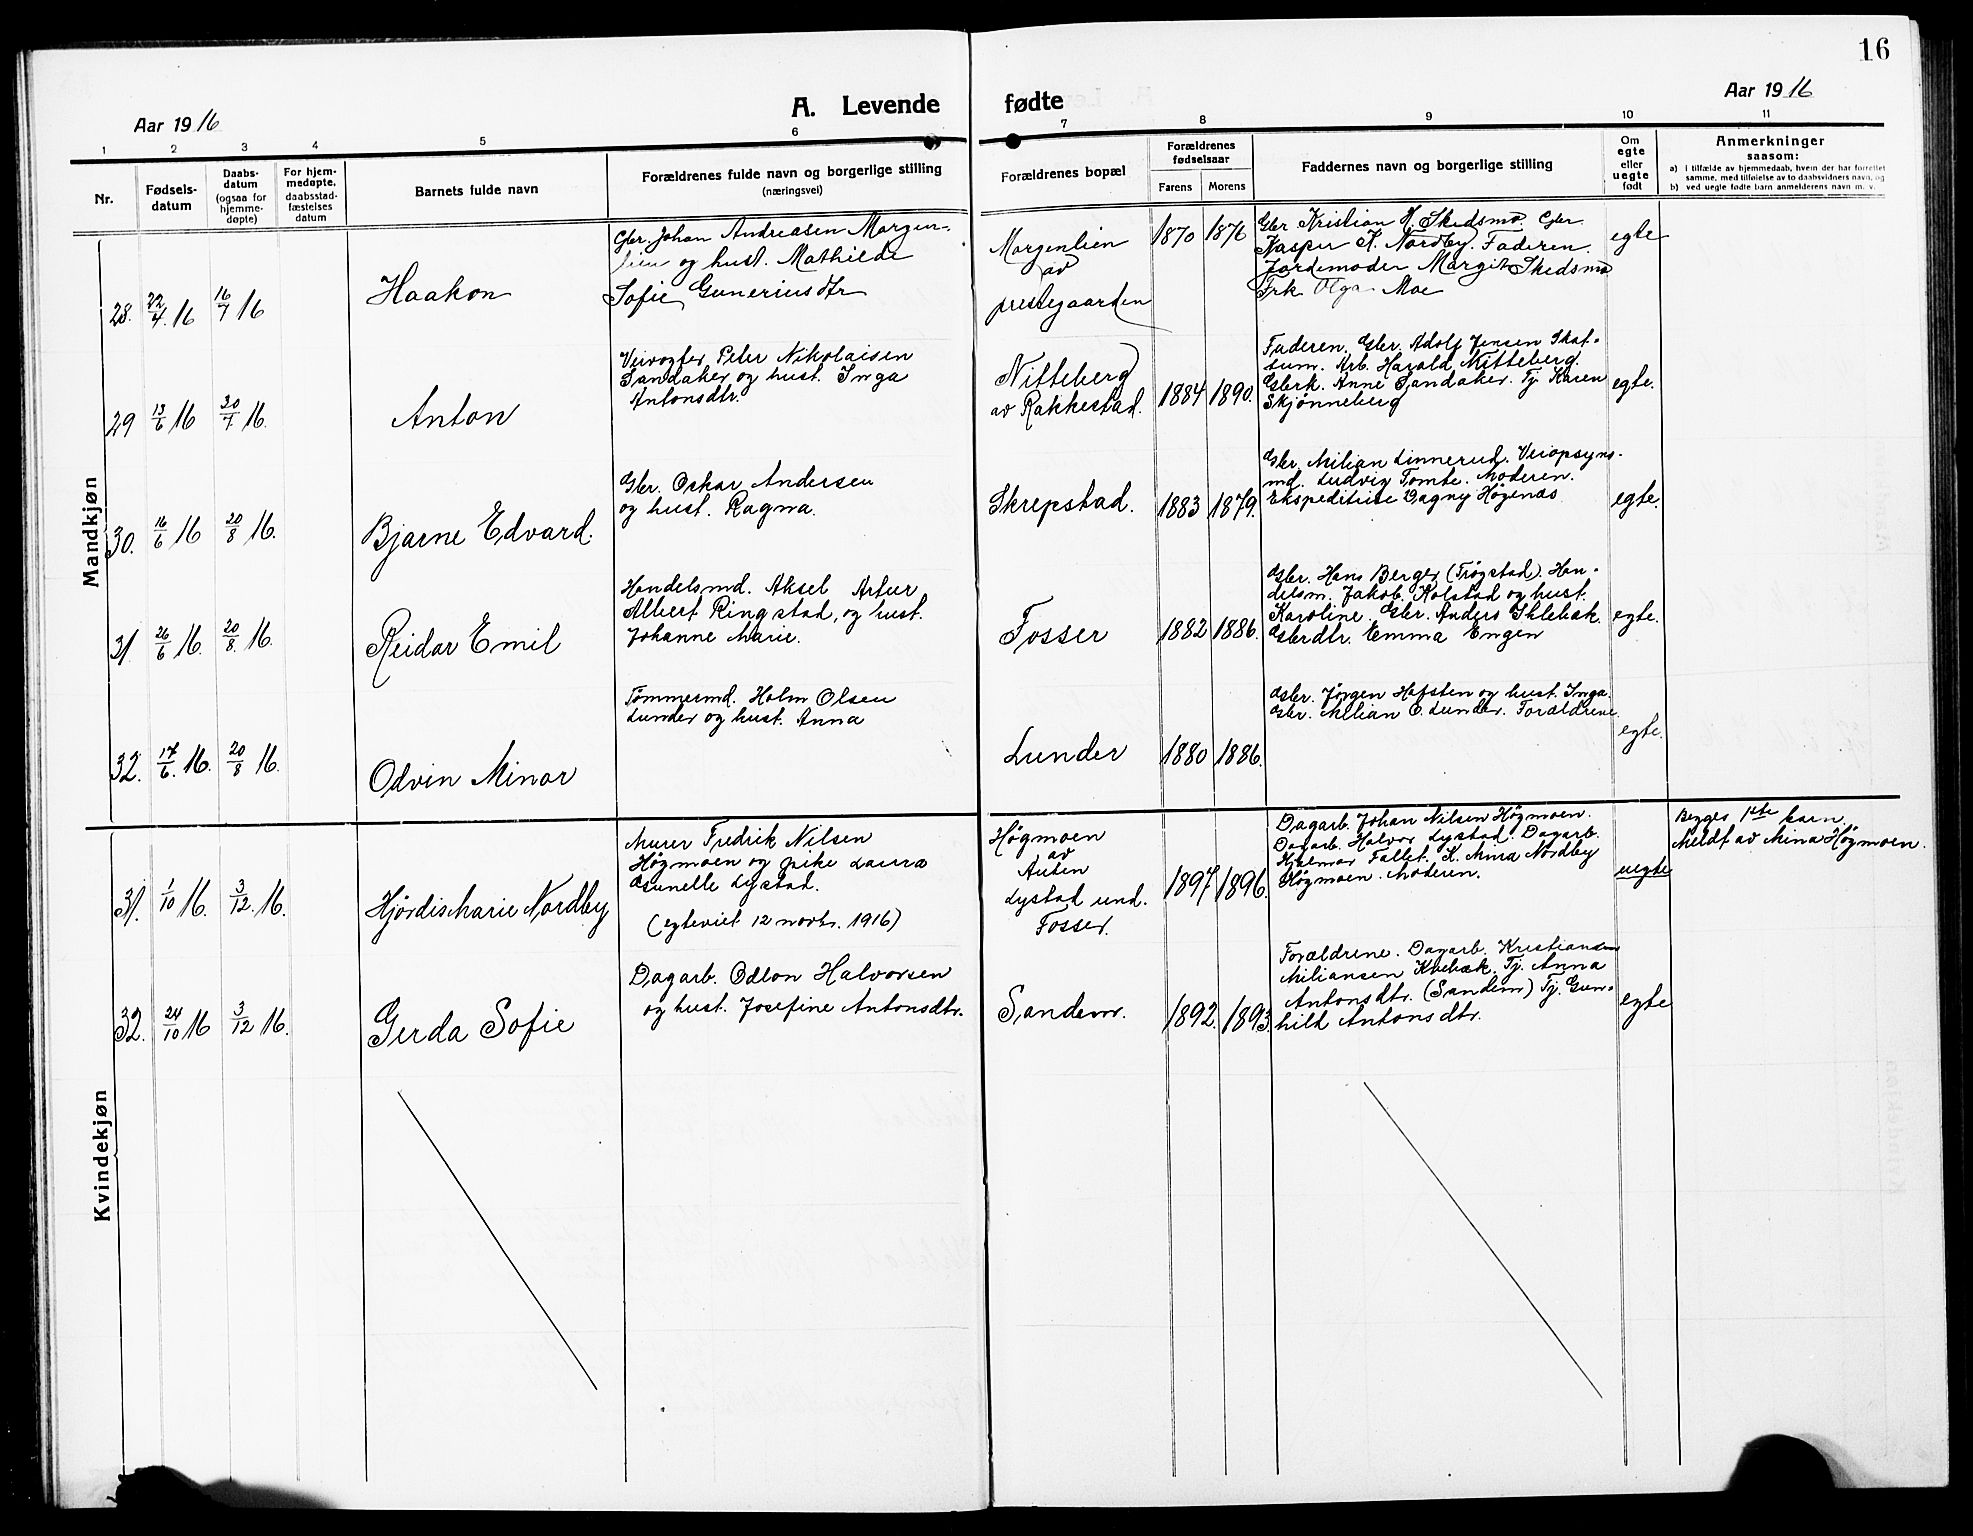 16
A. Levende fødte
Aar 1916
Aar 1916
1 2 3 4 5 6 7 8 9 10 11
Nr.
Fødsels-
datum
Daabs-
datum
(ogsaa for
hjemme-
døpte)
For hjem-
medøpte,
daabsstad-
fæstelses
datum
Barnets fulde navn
Forældrenes fulde navn og borgerlige stilling
(næringsvei)
Forældrenes bopæl
Forældrenes
fødselsaar
Farens Morens
Faddernes navn og borgerlige stilling
Om
egte
eller
uegte
født
Anmerkninger
saasom:
a) i tilfælde av hjemmedaab, hvem der har forrettet
samme, med tilføielse av to daabsvidners navn, og
b) ved uegte fødte barn anmelderens navn m. v.
Mandkjøn
28. 22/4. 16 16/7 16
Haakon
Gbr. Johan Andreasen Morgen-
lien og hust. Mathilde
Sofie Guneriusdtr
Morgenlien
av
prestegaarden
1870 1876
Gbr Kristian H. Skedsmo. Gbr.
Kasper K. Nordby. Faderen.
Jordemoder Margit Skedsmo
Frk Olga Moe
egte
29 13/6 16 30/7 16.
Anton
Veivogter Peter Nikolaisen
Sandaker og hust. Inga
Antonsdtr.
Nitteberg
av Rakkestad.
1884 1890.
Faderen. Gbr. Adolf Jensen Skat-
tum. Krb. Harald Nitteberg.
Gbrk. Anne Sandaker. Tj. Karen
Skjønneberg
egte.
30. 16/6 16 20/8 16.
Bjarne Edvard.
Gbr. Oskar Andersen
og hust. Ragna.
Skrepstad.
1883 1879.
Gbr. Milian Linnerud. Veiopsyns-
md. Ludvig Tomte. Moderen.
Ekspeditrise Dagny Høgenæs
egte.
31 26/6 16. 20/8. 16.
Reidar Emil
Handelsmd. Aksel Artur
Albert Ringstad, og hust.
Johanne Marie.
Fosser
1882 1886.
Gbr. Hans Berger (Trøgstad). Han-
delsm. Jakob Kolstad og hust.
Karoline. Gbr. Anders Ihlebæk.
Gbrdtr. Emma Engen
egte.
32. 17/6. 16. 20/8 16.
Odvin Minar
Tømmermd. Holm Olsen
Lunder og hust. Anna
Lunder
1880 1886.
Gbr. Jørgen Hafsten og hust. Inga.
Gbr. Milian O. Lunder. Forældrene.
egte.
Kvindekjøn
31. 1/10 16. 3/12. 16.
Hjørdis Marie Nordby
Murer Fredrik Nilsen
Høgmoen og pike Laura
Gunelle Lystad.
(egteviet 12 novbr. 1916)
Høgmoen
av
Auten
Lystad und.
Fosser.
1897 1896.
Dagarb. Johan Nilsen Høgmoen.
Dagarb. Halvor Lystad. Dagarb.
Hjalmar Fallet. K. Mina Nordby
Høgmoen. Moderen.
uegte
Begges 1ste barn.
Meldt av Mina Høgmoen.
32. 24/10 16 3/12 16.
Gerda Sofie
Dagarb. Odlon Halvorsen
og hust. Josefine Antonsdtr.
Sandem.
1892. 1893.
Forældrene. Dagarb. Kristiansen
Miliansen Kvebæk. Tj. Anna
Antonsdtr. (Sandem) Tj. Gun-
hild Antonsdtr.
egte